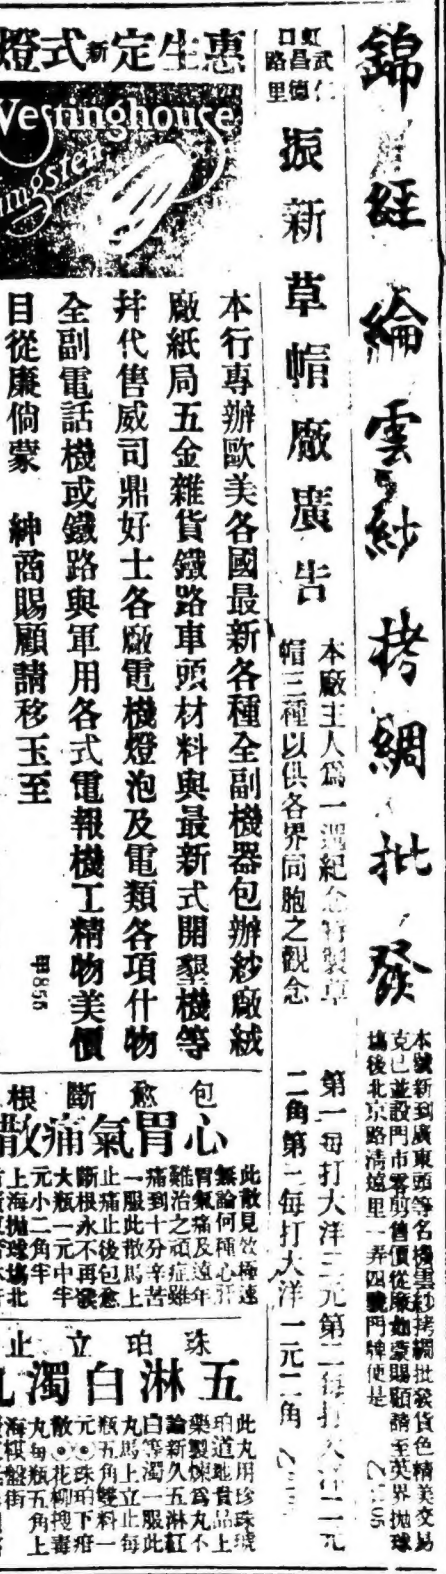 錦經綸雲紗拷綢批發
本號新到廣東頭等名機雲紗拷綢批發貨色精美交易
克已並設門市零剪售價從廉如蒙賜顧請至英界拋球
塲後北京路清遠里一弄四號門牌便是
虹口武昌路仁德里
振新草帽廠廣告
本廠主人爲一週紀念特製草
帽三種以供各界同胞之觀念
第一每打大洋三元第二每打大洋二元
二角第三每打大洋一元二角
惠生定新式燈
Westinghouse
Tungsten
本行專辦歐美各國最新各種全副機器包辦紗廠絨
廠紙局五金雜貨鐵路車頭材料與最新式開墾機等
幷代售威司鼎好士各廠電機燈泡及電類各項什物
全副電話機或鐵路與軍用各式電報機工精物美價
目從廉倘蒙 紳商賜顧請移玉至
甲855
包愈斷根
心胃氣痛散
此散見效極速
無論何種心肝
胃氣痛及遠年
難治之頑症雖
痛到十分辛苦
一服此散馬上
止痛止後包愈
斷根永不再發
大瓶一元中牢
元小二角牢
上海拋球塲北
珠珀立止
五淋白濁丸
此丸用珍珠琥
珀道地貴品上
藥製煉爲丸不
論新久五淋紅
白等濁一服此
丸馬上立止每
瓶五角雙料一
元⊙珠珀下疳
散⊙花柳搜毒
丸每瓶五角上
海棋盤街